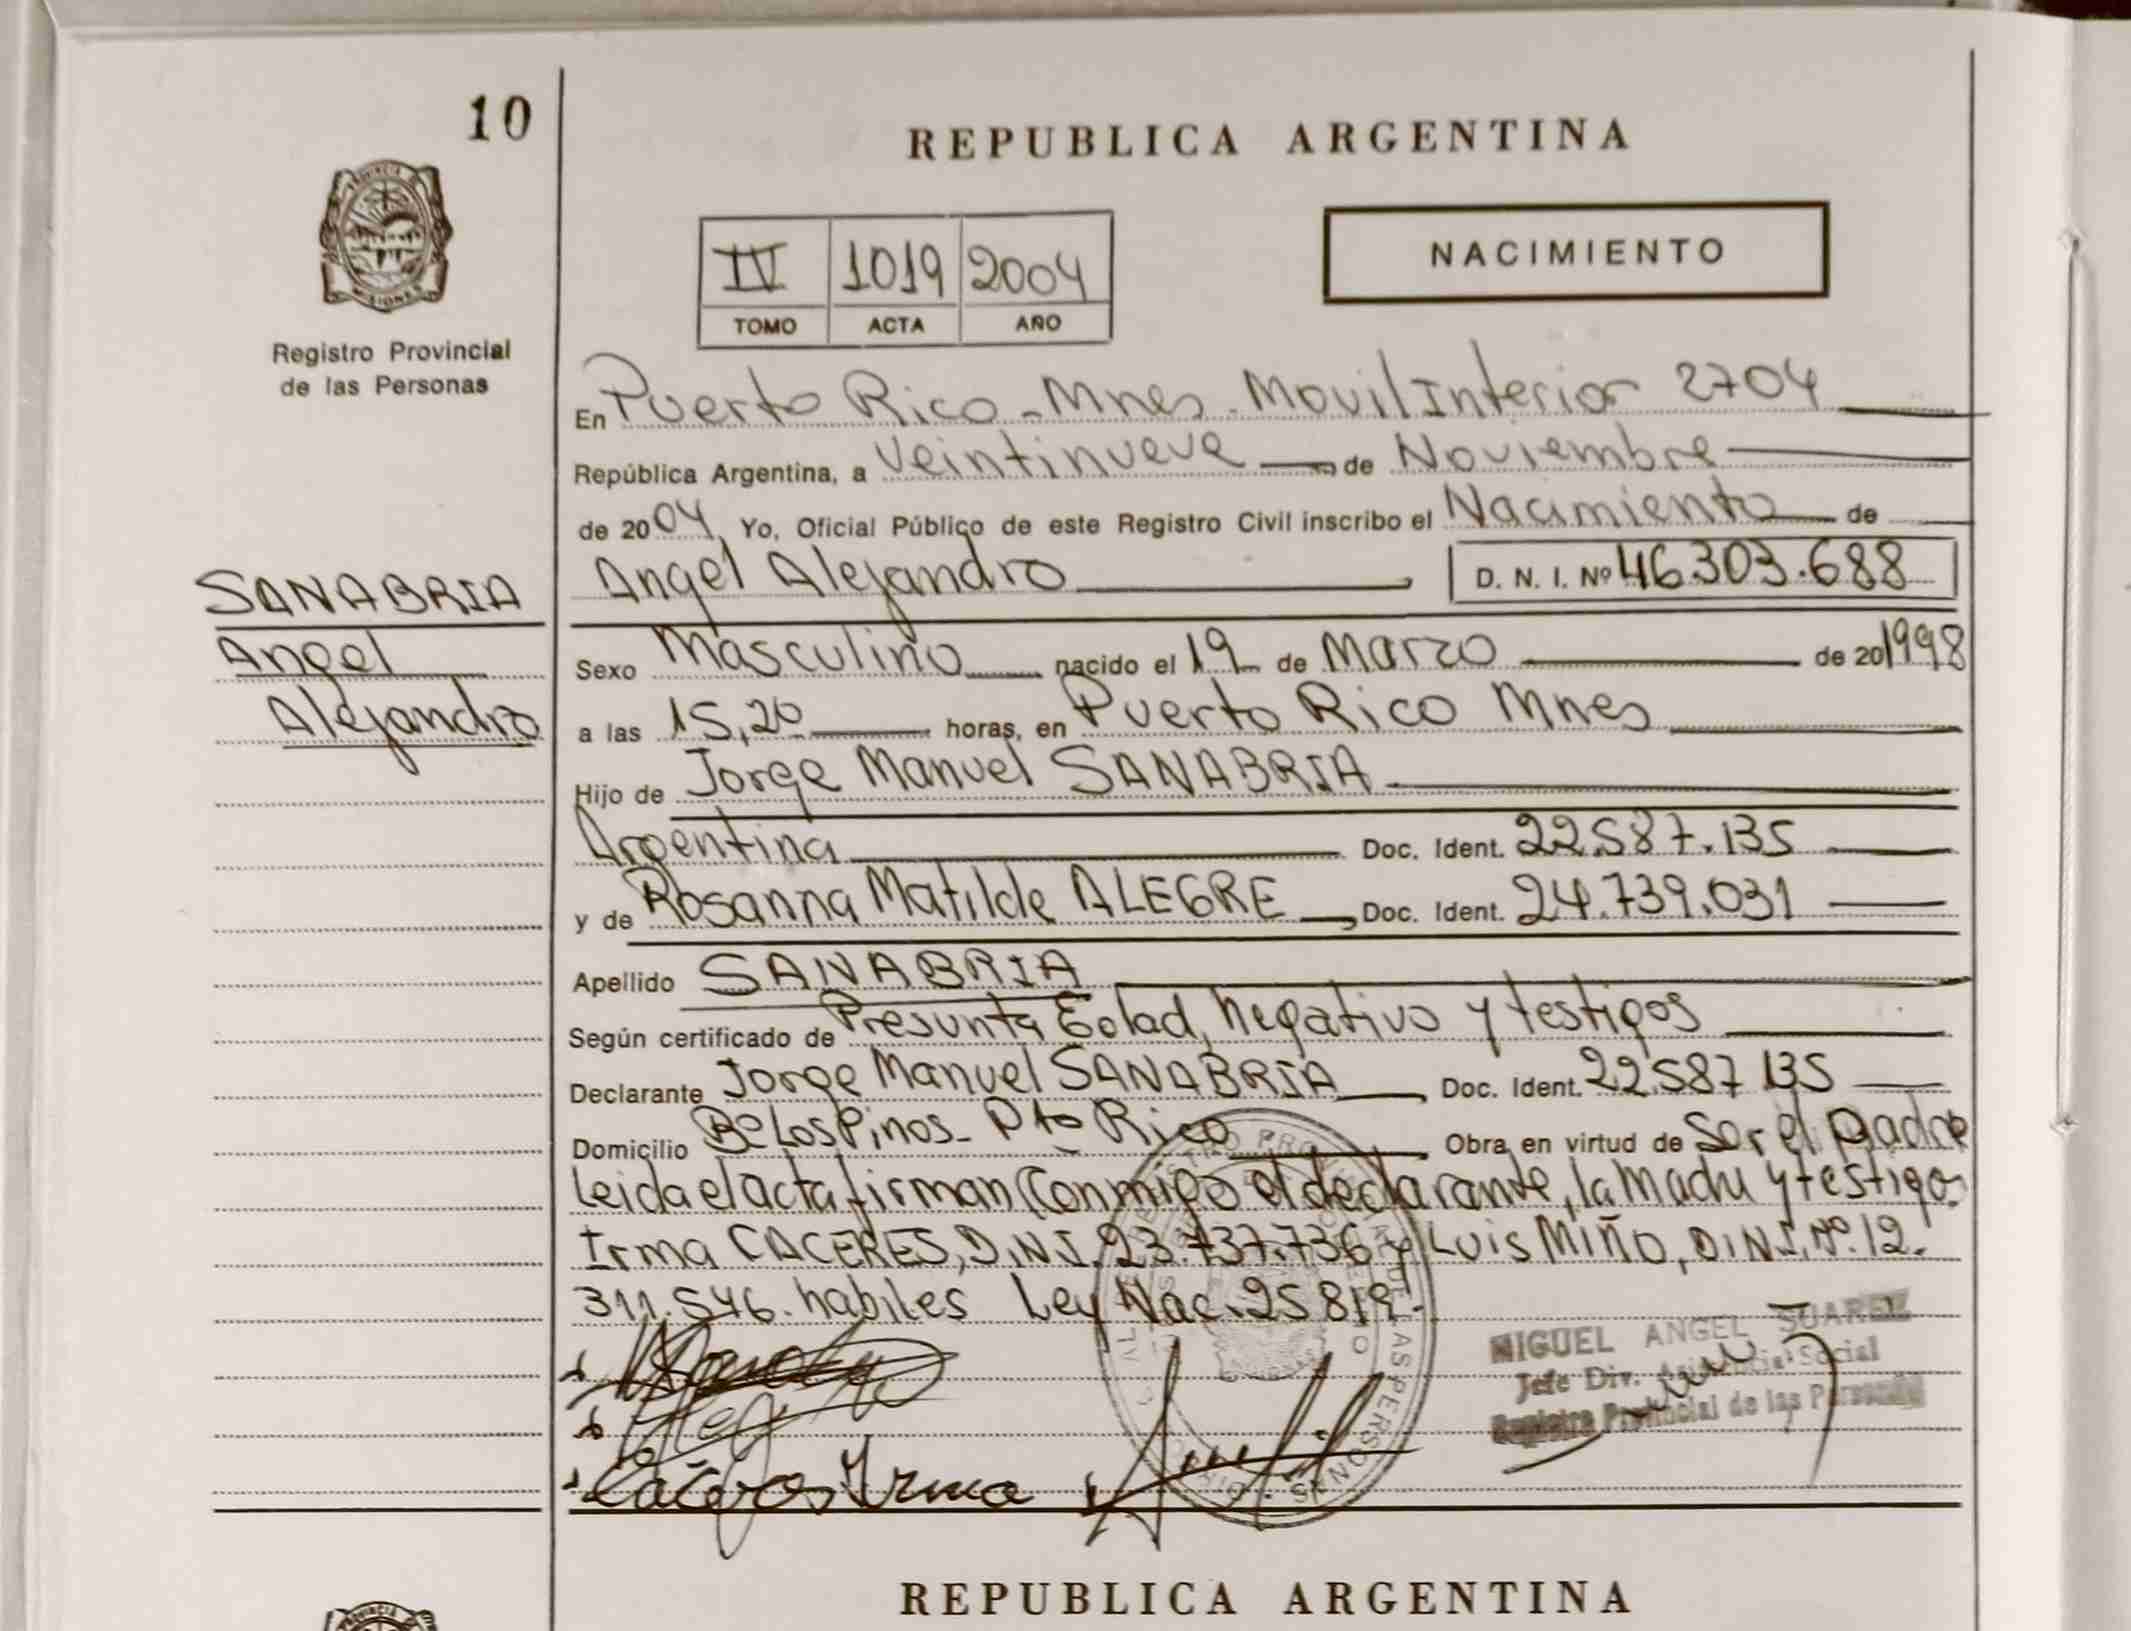 10
REPUBLICA ARGENTINA
NACIMIENTO
IV 1019 2004
TOMO ACTA AÑO
PROVINCIA DE
MISIONES
Registro Provincial
de las Personas
En Puerto Rico - Mnes. Movil Interior 2704
República Argentina, a Veintinueve de Noviembre
de 2004 Yo, Oficial Público de este Registro Civil inscribo el Nacimiento de
Angel Alejandro D. N. I. Nº 46.303.688
SANABRIA
Angel
Alejandro
Sexo Masculino nacido el 19 de Marzo de 20 1998
a las 15,20 horas, en Puerto Rico Mnes
Hijo de Jorge Manuel SANABRIA
Argentina Doc. Ident. 22.587.135
y de Rosanna Matilde ALEGRE Doc. Ident. 24.739.031
Apellido SANABRIA
Según certificado de Presunta Edad, Negativo y testigos
Declarante Jorge Manuel SANABRIA Doc. Ident. 22.587 135
Domicilio Bº Los Pinos - Pto Rico Obra en virtud de Ser el padre
Leida el acta firman Conmigo el declarante, la Madre y testigos
Irma CACERES, D.N.I. 23.737.736 y Luis MIÑO, D.N.I. Nº. 12.
311.546. habiles Ley Nac. 25819.
MIGUEL ANGEL SUAREZ
Jefe Div. Asistencia Social
Registro Provincial de las Personas
Cáceres Irma
REPUBLICA ARGENTINA